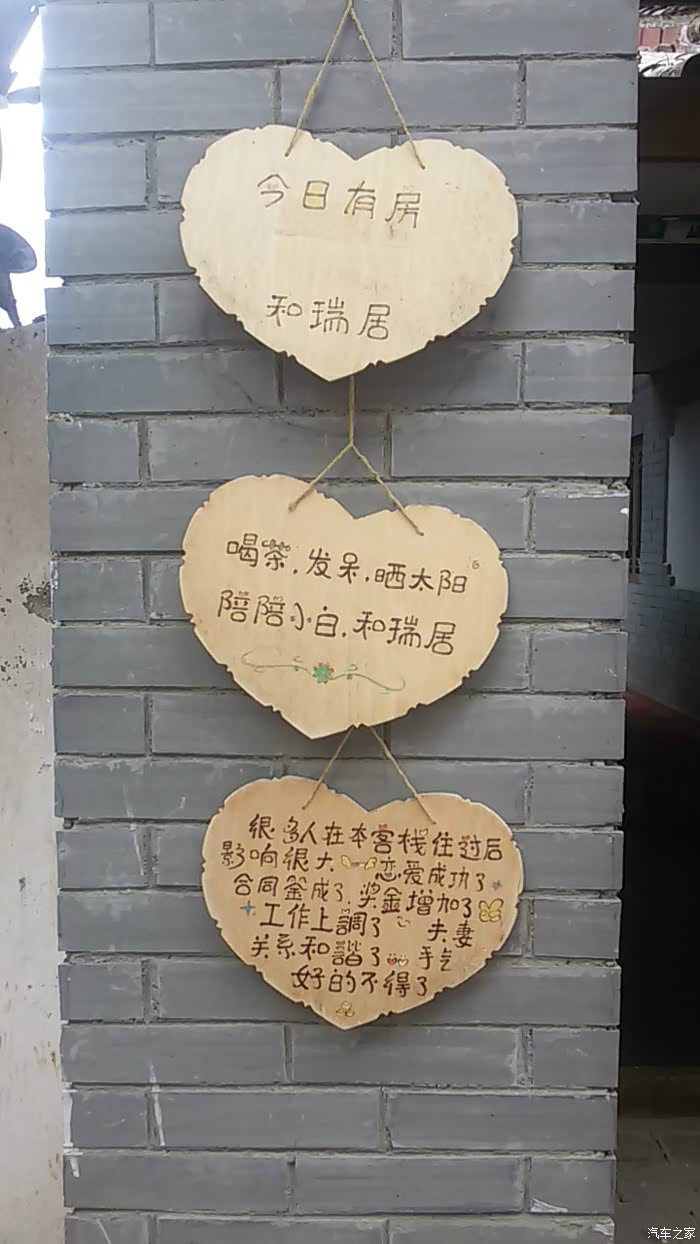 今日有房
和瑞居
喝茶.发呆.晒太阳
陪陪小白.和瑞居
很多人在本客栈住过后
影响很大 恋爱成功了
合同签成了 奖金增加了
工作上調了 夫妻
关系和諧了 手气
好的不得了
汽车之家